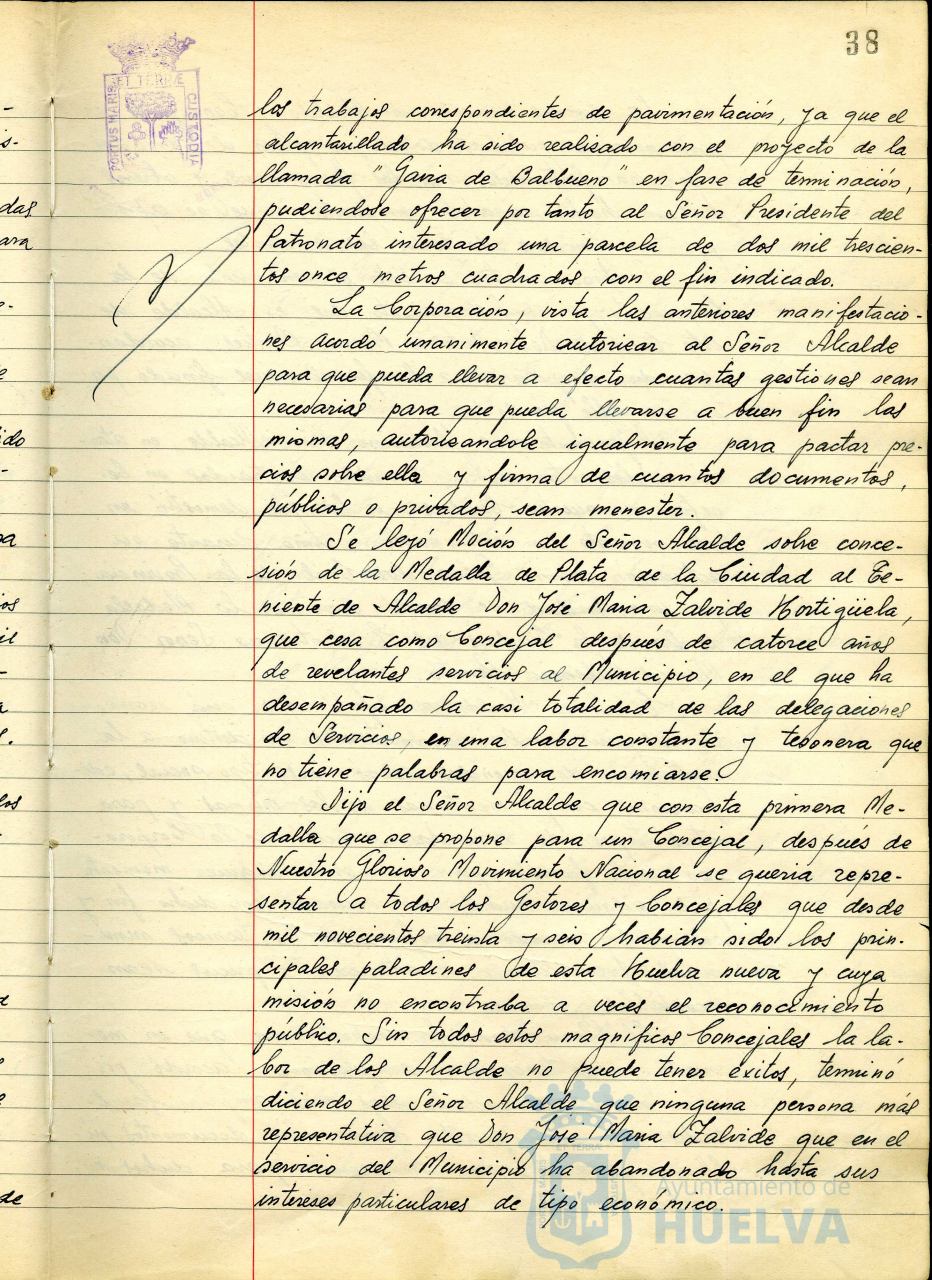 38
ET TERRÆ
PORTUS MARIS
CUSTODIA
los trabajos correspondientes de pavimentación, ya que el
alcantarillado ha sido realizado con el proyecto de la
llamada "Gavia de Balbueno" en fase de terminación,
pudiendose ofrecer por tanto al Señor Presidente del
Patronato interesado una parcela de dos mil trescien-
tos once metros cuadrados con el fin indicado.
La Corporación, vista las anteriores manifestacio-
nes acordó unanimente autorizar al Señor Alcalde
para que pueda llevar a efecto cuantas gestiones sean
necesarias para que pueda llevarse a buen fin las
mismas, autorisandole igualmente para pactar pre-
cios sobre ella y firma de cuantos documentos,
públicos o privados, sean menester.
Se leyó Moción del Señor Alcalde sobre conce-
sión de la Medalla de Plata de la Ciudad al Te-
niente de Alcalde Don José Maria Zalvide Hortigüela,
que cesa como Concejal después de catorce años
de revelantes servicios al Municipio, en el que ha
desempañado la casi totalidad de las delegaciones
de Servicios, en una labor constante y tesonera que
no tiene palabras para encomiarse.
Dijo el Señor Alcalde que con esta primera Me-
dalla que se propone para un Concejal, después de
Nuestro Glorioso Movimiento Nacional se queria repre-
sentar a todos los Gestores y Concejales que desde
mil novecientos treinta y seis habían sido los prin-
cipales paladines de esta Huelva nueva y cuya
misión no encontraba a veces el reconocimiento
público. Sin todos estos magnificos Concejales la la-
bor de los Alcalde no puede tener exitos, terminó
diciendo el Señor Alcalde que ninguna persona más
representativa que Don José Maria Zalvide que en el
servicio del Municipio ha abandonado hasta sus
intereses particulares de tipo económico.
Ayuntamiento de
HUELVA